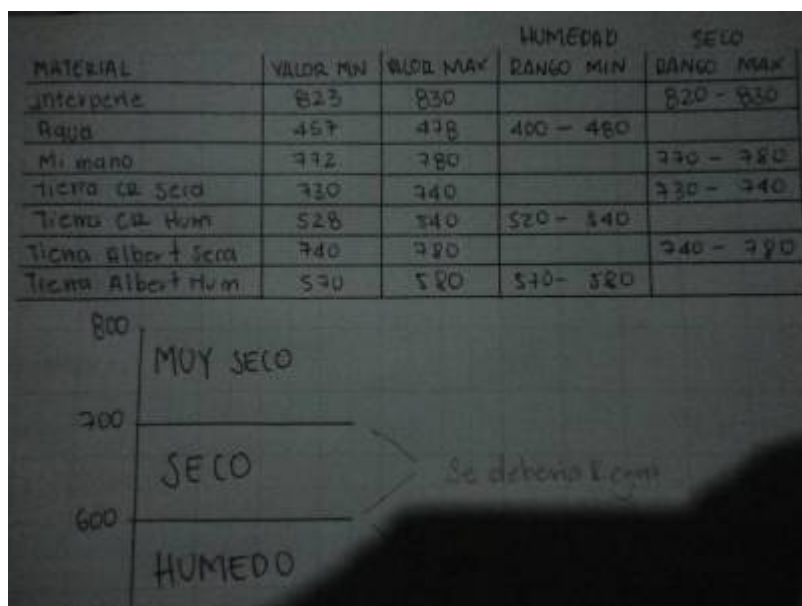 HUMEDAD SECO
MATERIAL VALOR MIN VALOR MAX RANGO MIN RANGO MAX
Interperie 823 830 820 - 830
Agua 457 478 400 - 480
Mi mano 772 780 770 - 780
Tierra CR Seca 730 740 730 - 740
Tierra CR Hum 528 540 520 - 540
Tierra Albert Seca 740 780 740 - 780
Tierra Albert Hum 570 580 570 - 580
800
MUY SECO
700
SECO
Se debería Regar
600
HUMEDO